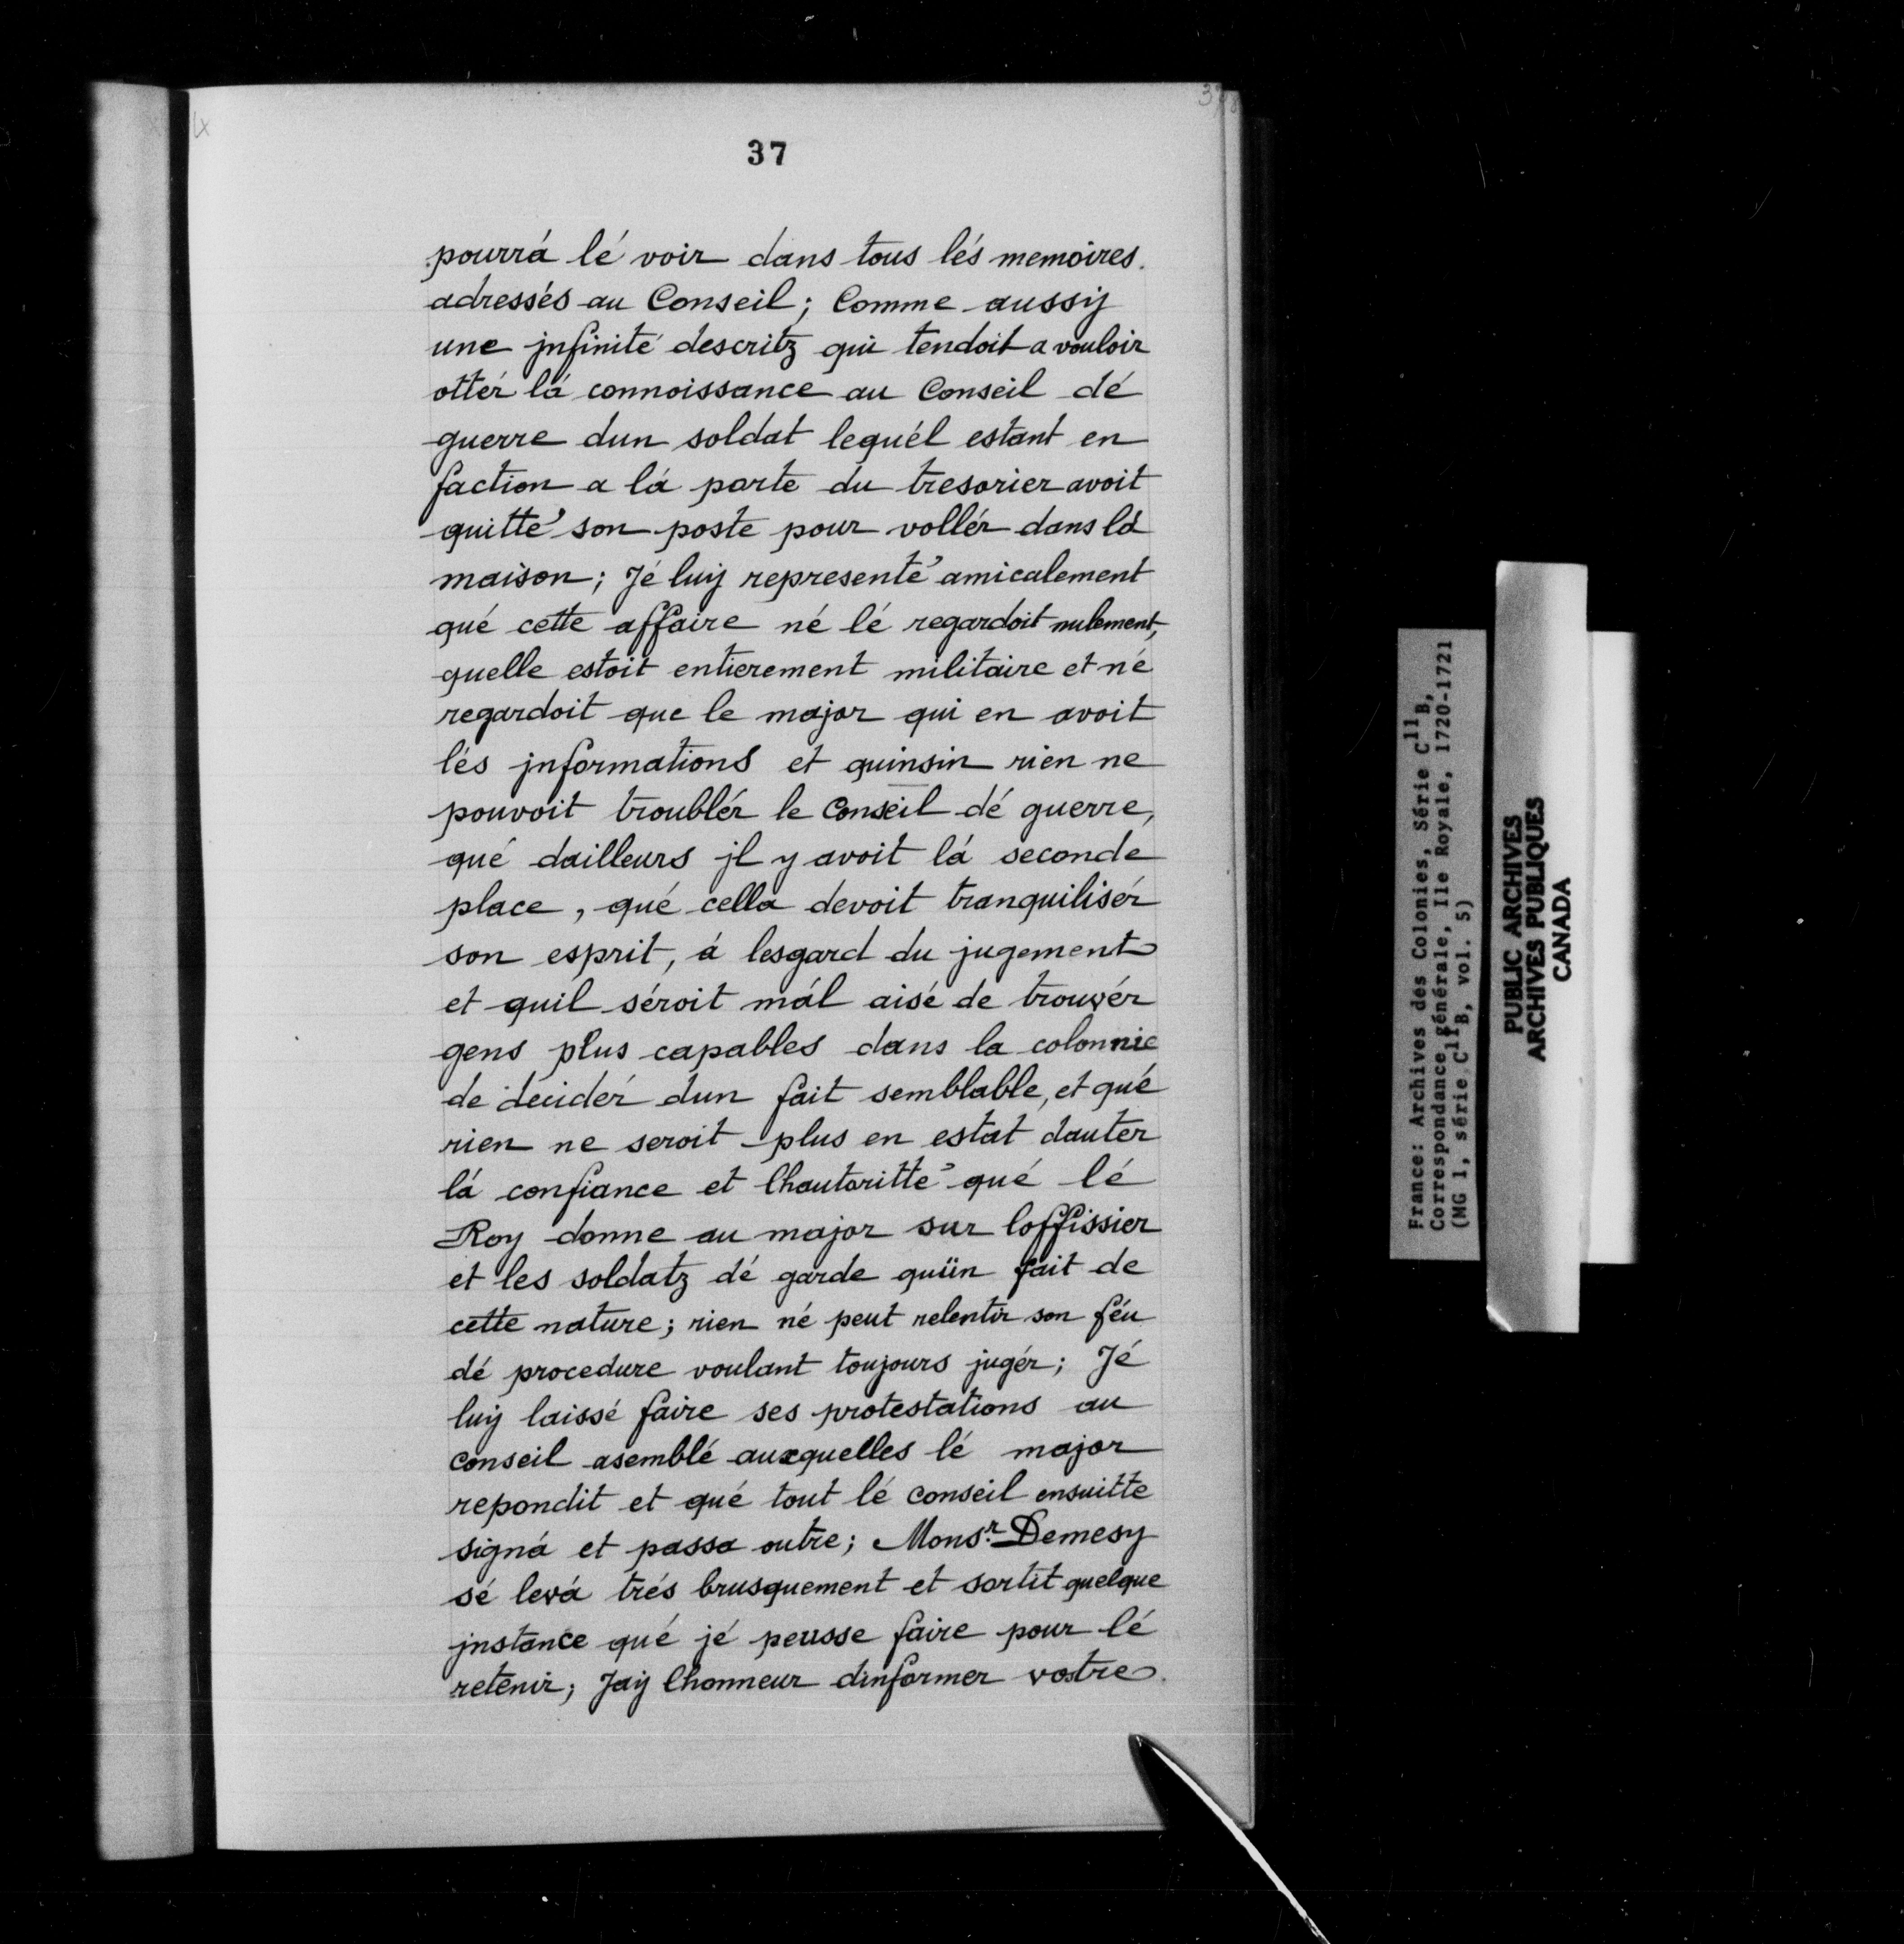 37
pourrá lé voir dans tous lés memoires.
adressés au Conseil; Comme aussy
une jnfinité descritz qui tendoit a vouloir
ottér lá connoissance au Conseil dé
guerre dun soldat lequél estant en
faction a lá porte du tresorier avoit
quitté son poste pour vollér dans lá
maison; Jé luy representé amicalement
qué cette affaire né lé regardoit nulement,
quelle estoit entierement militaire et né
regardoit que le major qui en avoit
lés jnformations et quinsin rien ne
pouvoit troublér le Conseil dé guerre,
qué dailleurs jl y avoit lá seconde
place, qué cella devoit tranquilisér
son esprit, á lesgard du jugement
et quil séroit mál aisé de trouvér
gens plus capables dans la colonnie
de décidér dun fait semblable, et qué
rien ne seroit plus en estat dauter
lá confiance et lhautoritté qué lé
Roy donne au major sur loffissier
et les soldatz dé garde quün fait de
cette nature; rien né peut relentir son féu
dé procedure voulant toujours jugér; Jé
luy laissé faire ses protestations au
Conseil asemblé auxquelles lé major
repondit et qué tout lé conseil ensuitte
signá et passa outre; Monsr. Demesy
sé levá trés brusquement et sortit quelque
jnstance qué jé peusse faire pour lé
retenir; Jay lhonneur dinformer vostre
France: Archives des Colonies, Série C11B,
Correspondance générale, Ile Royale, 1720-1721
(MG 1, série C11B, vol. 5)
PUBLIC ARCHIVES
ARCHIVES PUBLIQUES
CANADA